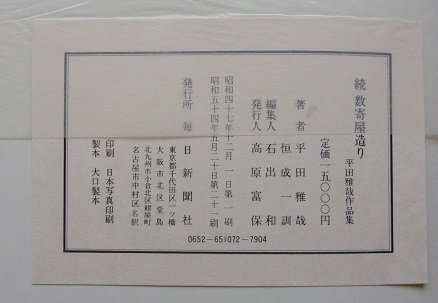 続 数寄屋造り 平田雅哉作品集
定価一五〇〇〇円
著者 平田雅哉
恒成一訓
編集人 石出和
発行人 高原富保
昭和四十七年十二月一日第一刷
昭和五十四年五月二十日第二十一刷
発行所 毎日新聞社
東京都千代田区一ツ橋
大阪市北区堂島
北九州市小倉北区紺屋町
名古屋市中村区名駅
印刷 日本写真印刷
製本 大口製本
0652-651072-7904